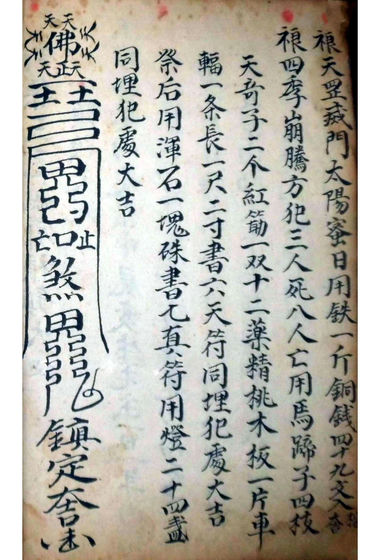 禳天罡蔵門太陽蜜日用鉄一斤銅銭四十九文入舎
禳四季崩騰方犯三人死八人亡用馬蹄子四枝
天奇子二个紅筯一双十二薬精桃木板一片車
輻一条長一尺二寸書六天符同埋犯處大吉
祭后用渾石一塊硃書七真符用燈二十四盞
同埋犯處大吉
天天
佛
天正天
煞
鎮定